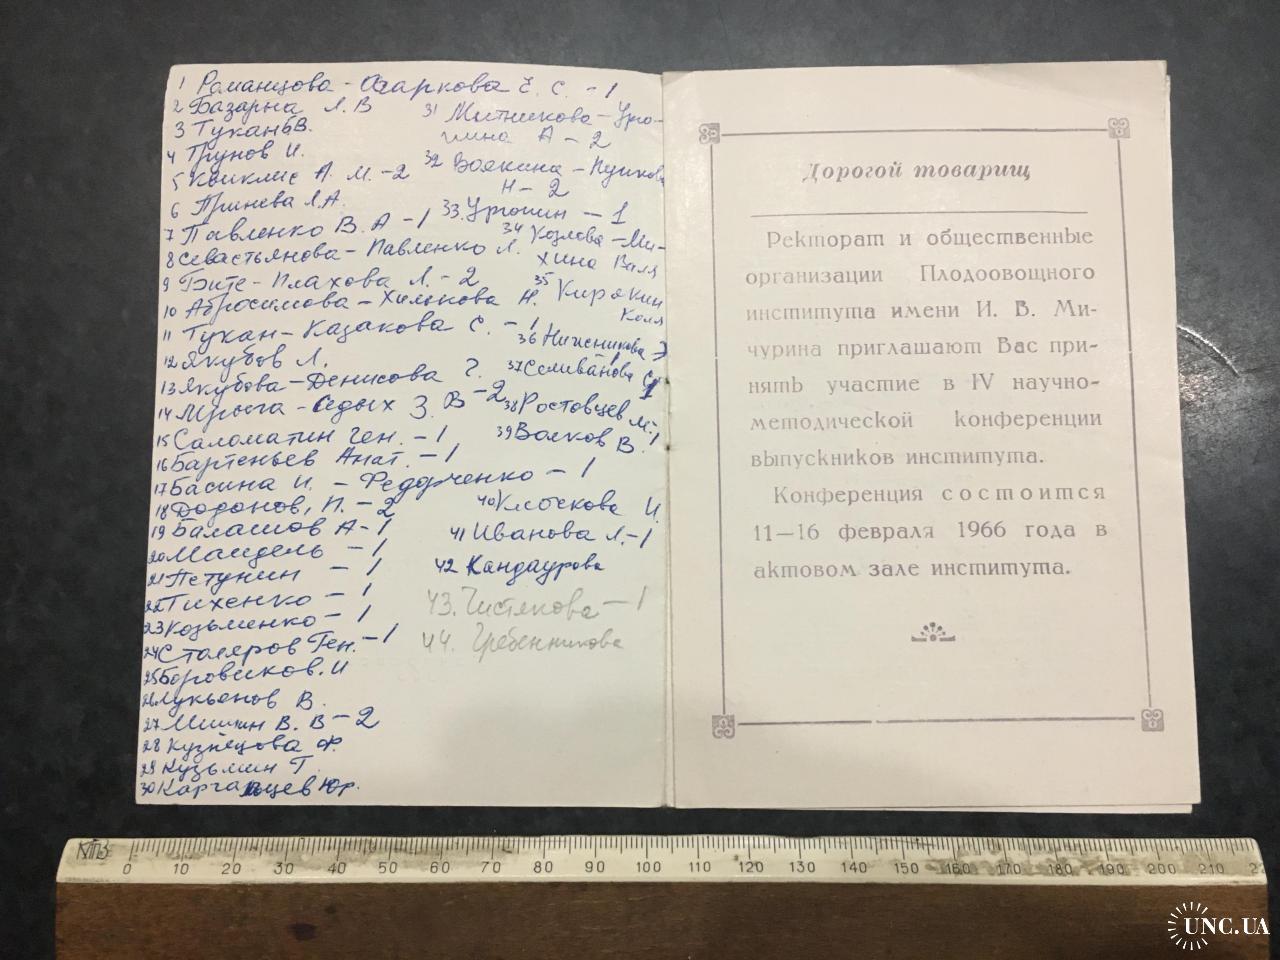 1 Романцова - Озаркова Е. С. - 1
2 Базарна Л. В
3 Тукан Б В.
4 Трунов И.
5 Квиклис А. М. - 2
6 Принева Л. А.
7 Павленко В. А - 1
8 Севастьянова - Павленко Л.
9 Бите - Плахова Л. - 2
10 Абросимова - Хилокова Н.
11 Тукан - Казакова С. - 1
12 Якубов Л.
13 Якубова - Денисова Г.
14 Седых З. В - 2
15 Саломатин Ген. - 1
16 Бартеньев Анат. - 1
17 Басина И. - Федорченко - 1
18 Додонов, П. - 2
19 Балашов А - 1
20 Мандель - 1
21 Петунин - 1
22 Тихенко - 1
23 Козьменко - 1
24 Столяров Ген. - 1
25 Боровиков. И
26 Лукьянов В.
27 Мишин В. В - 2
28 Кузнецова Ф.
29 Кузьмин Г.
30 Каргальцев Юр.
31 Митникова - Уро-
А - 2
32 Воякина - Пушкова
Н - 2
33. Урюпин - 1
34 Козлова - Ми-
хина Валя
35 Кирякин
Коля
36 Нижникова
37 Селиванова С
1
38 Ростовцев М - 1
39 Волков В.
40 Клочкова И.
41 Иванова Л. - 1
42 Кандаурова
43. Чистякова - 1
44. Гребенникова
Дорогой товарищ
Ректорат и общественные
организации Плодоовощного
института имени И. В. Ми-
чурина приглашают Вас при-
нять участие в IV научно-
методической конференции
выпускников института.
Конференция состоится
11—16 февраля 1966 года в
актовом зале института.
0 10 20 30 40 50 60 70 80 90 100 110 120 130 140 150 160 170 180 190 200 210
UNC.UA